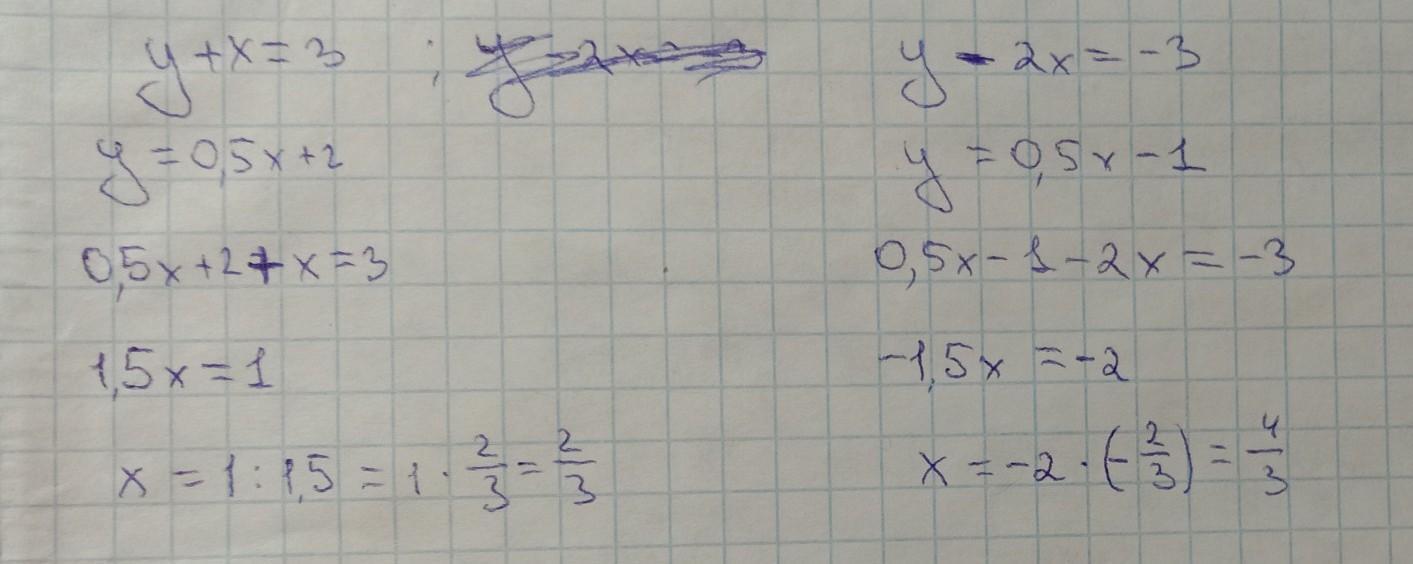 y + x = 3 ; y - 2x = -3
y = 0,5x + 2
y = 0,5x - 1
0,5x + 2 + x = 3
0,5x - 1 - 2x = -3
1,5x = 1
-1,5x = -2
x = 1 : 1,5 = 1 · 2/3 = 2/3
x = -2 · (-2/3) = 4/3